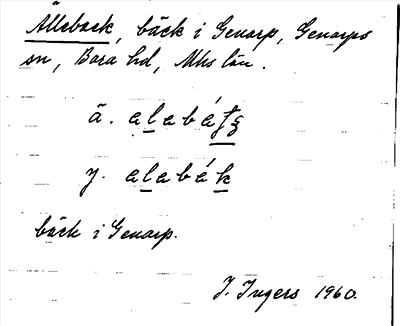 Ålleback, bäck i Genarp, Genarps
sn, Bara hd, Mhs län.
ä. alabá
y. alabák
bäck i Genarp.
I. Ingers 1960.